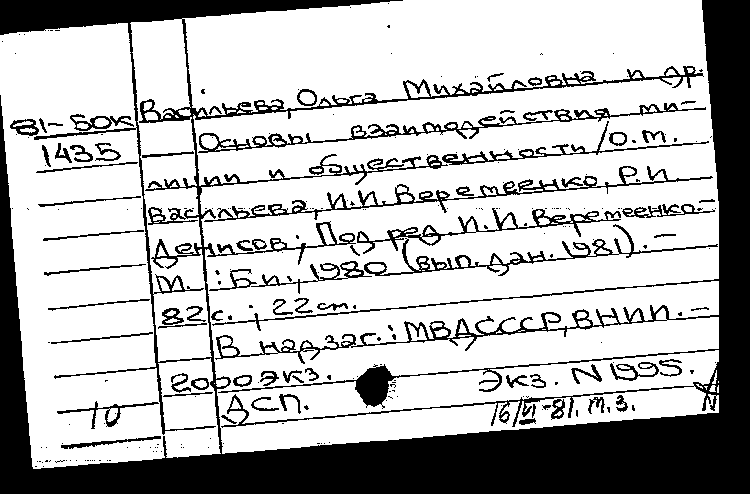 Васильева, Ольга Михайловна и др.
81-50к
1435
Основы взаимодействия ми-
лиции и общественности / О.М.
Васильева, И.И. Веремеенко, Р.И.
Денисов; Под ред. И.И. Веремеенко.-
М. : Б.и., 1980 (вып. дан. 1981). -
82 с. ; 22 см.
В надзаг.: МВД СССР, ВНИИ. -
2000 экз.
Экз. N 1995.
ДСП.
10
16/VI-81. м.з.